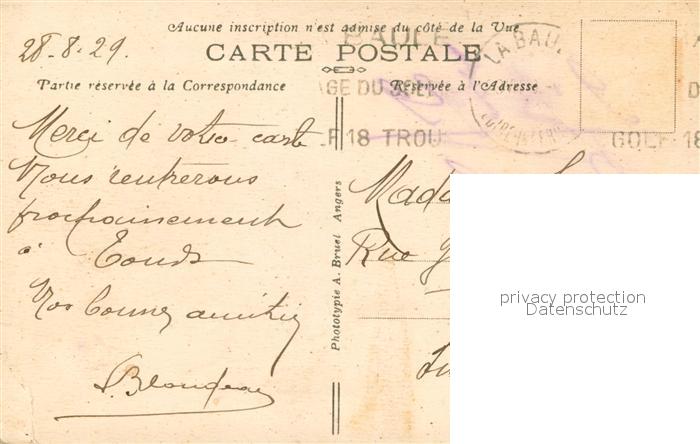 Aucune inscription n'est admise du côté de la Vue
28-8-29.
CARTE POSTALE
Partie réservée à la Correspondance
Réservée à l'Adresse
LA BAULE
GE DU SOLEIL
F 18 TROU
GOLF 18
Merci de votre carte
Nous rentrerons
prochainement
à
Nos bonnes amitiés
Blondeau
Phototypie A. Bruel Angers
Mada
Rue
privacy protection
Datenschutz